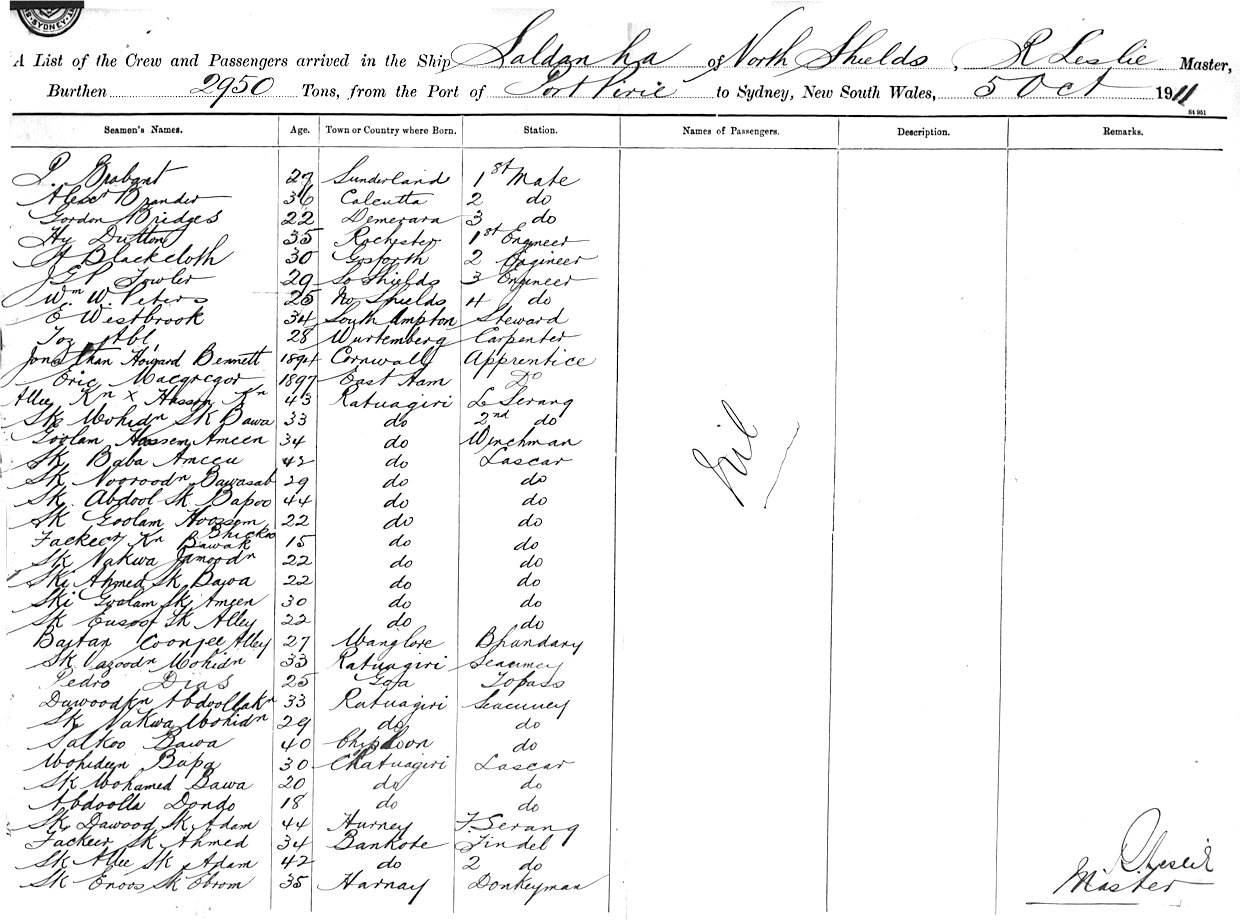 SYDNEY
A List of the Crew and Passengers arrived in the Ship Saldanha of North Shields, R Leslie Master,
Burthen 2950 Tons, from the Port of Port Pirie to Sydney, New South Wales, 5 Oct 1911
St 951
Seamen's Names. Age. Town or Country where Born. Station. Names of Passengers. Description. Remarks.
P. Brabant 27 Sunderland 1st Mate
Alexr Brander 36 Calcutta 2 do
Gordon Bridges 22 Demerara 3 do
Hy Dutton 35 Rochester 1st Engineer
H Blackcloth 30 Gosforth 2 Engineer
JGP Fowler 29 So Shields 3 Engineer
Wm W. Peters 25 No Shields 4 do
E Westbrook 34 South Ampton Steward
Abl 28 Wurtemberg Carpenter
Jonathan Howard Bennett 1894 Cornwall Apprentice
Eric Macgregor 1897 East Ham Do
Allee Kn x Hassan Kn 43 Ratuagiri Serang
Sk Mohidn Sk Bawa 33 do 2nd do
Goolam Hossem Ameen 34 do Winchman
Sk Baba Ameeu 42 do Lascar
Sk Nooroodn Bawasab 29 do do
Sk. Abdool Sk Bapoo 44 do do
Sk Goolam Hoossem 22 do do
Fackeer Kn Bhickoo Bawak 15 do do
Sk Nakwa Jamoodn 22 do do
Ski Ahmed Sk Bawa 22 do do
Ski Goolam Sk Ameen 30 do do
Sk Eusoof Sk Alley 22 do do
Bastan Coonjee Alley 27 Manglore Bhundary
Sk Vazoodn Mohidn 33 Ratuagiri Seacuney
Pedro Dias 25 Goa Topass
Dawoodkn Abdoollakn 33 Ratuagiri Seacuney
Sk Nakwa Mohidn 29 do do
Salkoo Bawa 40 Chiploon do
Mohideen Bapa 30 Chatuagiri Lascar
Sk Mohamed Bawa 20 do do
Abdoolla Dondo 18 do do
Sk Dawood Sk Adam 44 Hurney F. Serang
Fackeer Sk Ahmed 34 Bankote Tindel
Sk Allee Sk Adam 42 do 2 do
Sk Enoos Sk Ebrom 35 Harnay Donkeyman
Nil
R Leslie
Master